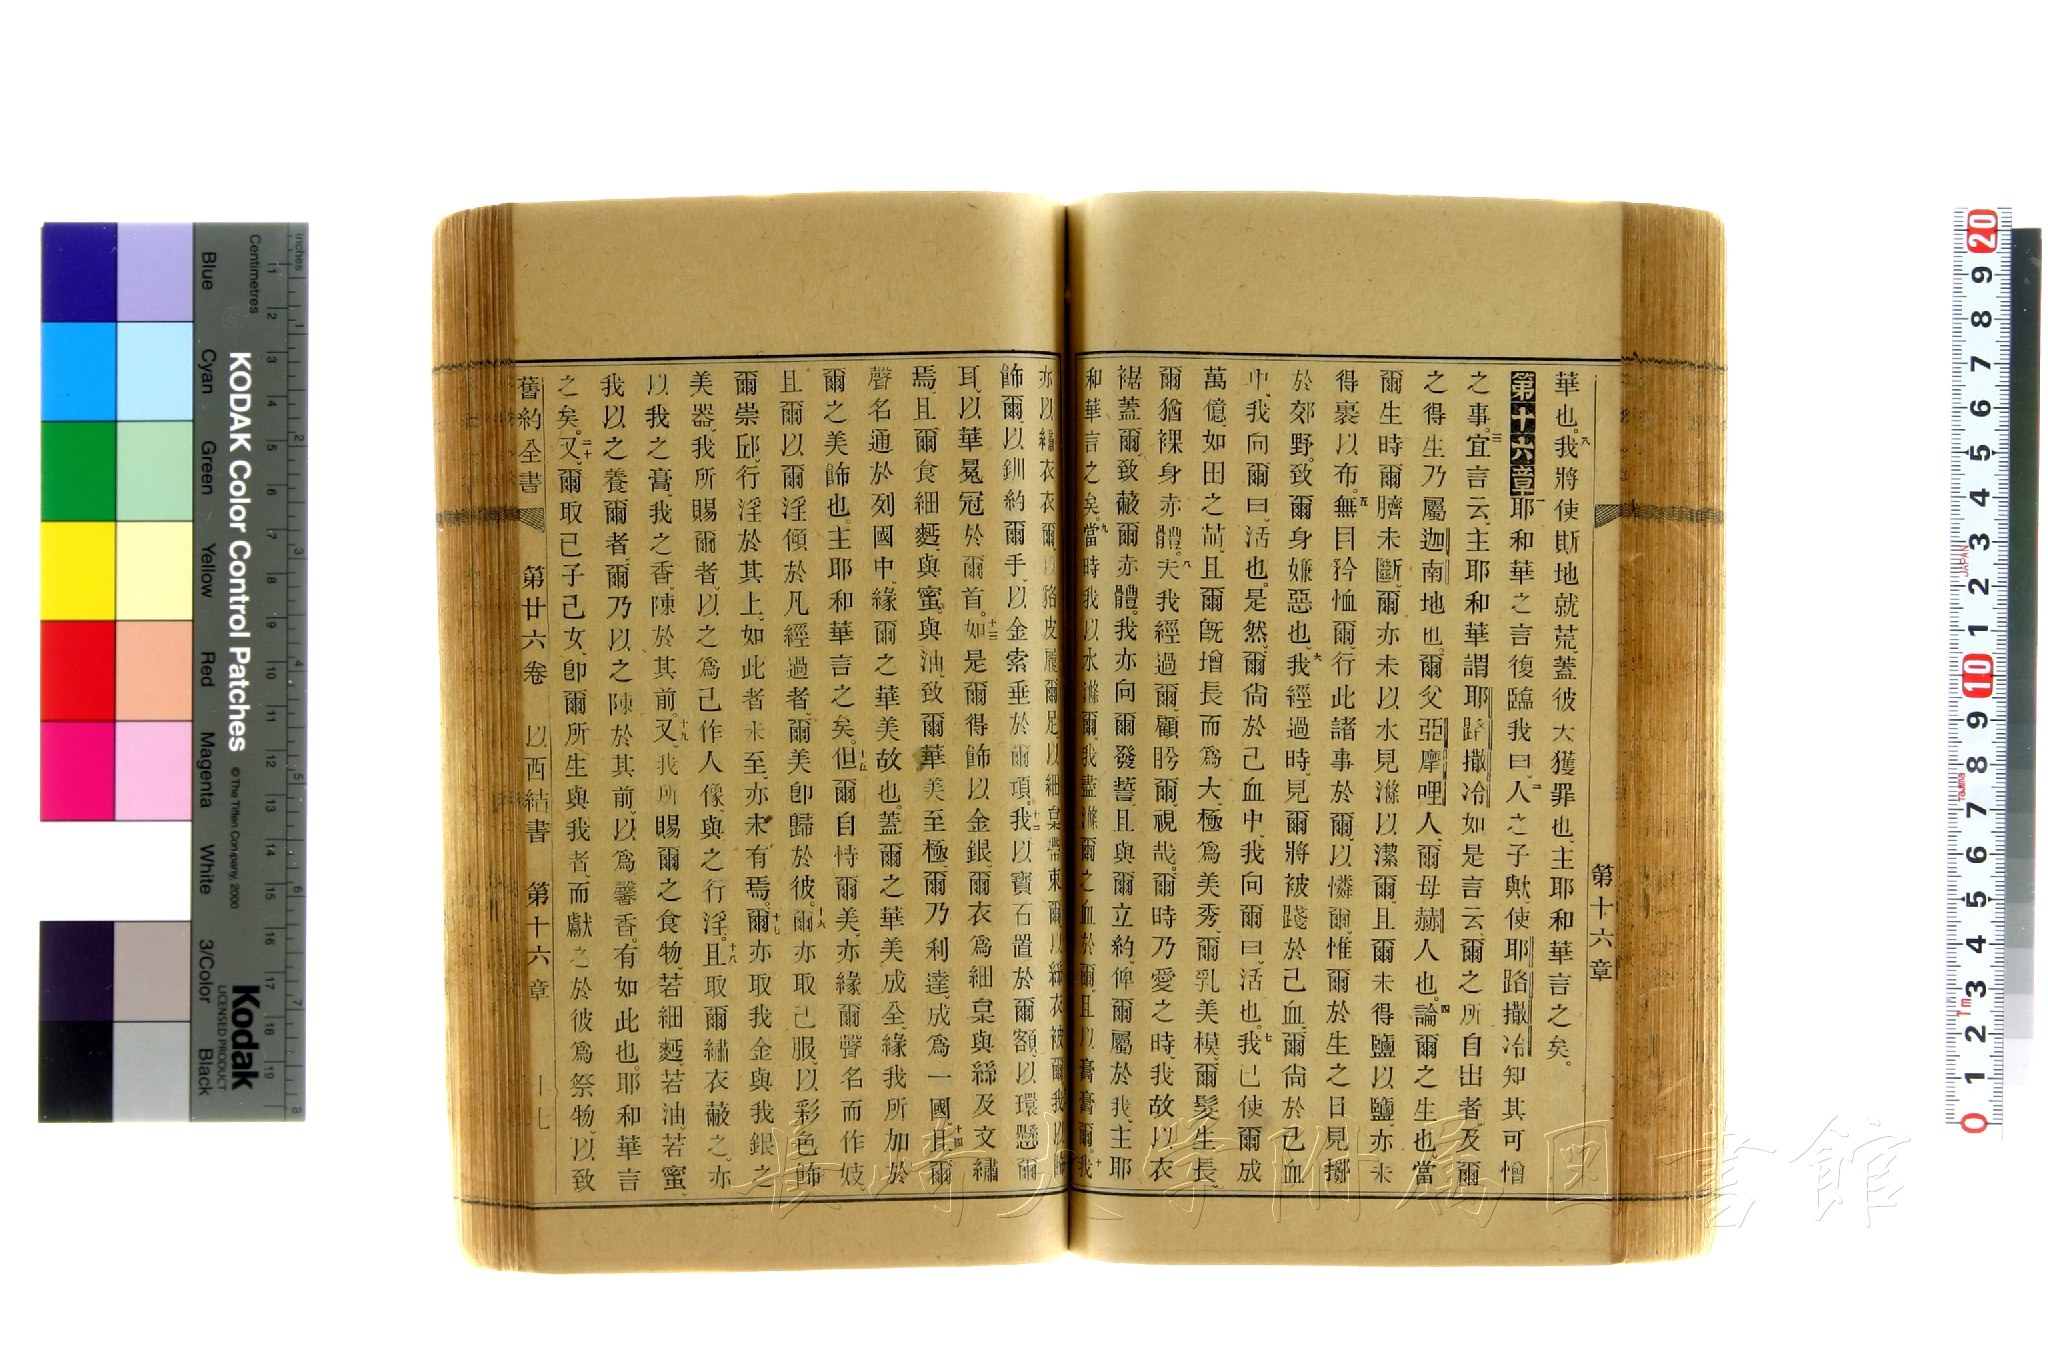 第十六章
華也。八我將使斯地就荒、蓋彼大獲罪也、主耶和華言之矣。
第十六章一耶和華之言復臨我曰、二人之子歟、使耶路撒冷知其可憎
之事。三宜言云、主耶和華謂耶路撒冷如是言云、爾之所自出者、及爾
之得生乃屬迦南地也。爾父亞摩哩人、爾母赫人也。四論爾之生也、當
爾生時、爾臍未斷、爾亦未以水見滌以潔爾、且爾未得鹽以鹽、亦未
得裹以布。五無目矜恤爾、行此諸事於爾、以憐爾、惟爾於生之日見擲
於郊野、致爾身嫌惡也。六我經過時、見爾將被踐於己血、爾尙於己血
中、我向爾曰、活也。是然、爾尙於己血中、我向爾曰、活也。七我已使爾成
萬億、如田之萌、且爾旣增長而爲大、極爲美秀、爾乳美模、爾髮生長、
爾猶裸身赤體。八夫我經過爾、顧盼爾、視哉、爾時乃愛之時、我故以衣
裾蓋爾、致蔽爾赤體。我亦向爾發誓、且與爾立約、俾爾屬於我、主耶
和華言之矣。九當時我以水滌爾、我盡滌爾之血於爾、且以膏膏爾。十我
亦以繡衣衣爾、以貉皮履爾足、以細枲帶束爾、以衣被爾、我以飾
飾爾、以釧約爾手、以金索垂於爾項。十二我以寶石置於爾額、以環懸爾
耳、以華冕冠於爾首。十三如是爾得飾以金銀、爾衣爲細枲與絲及文繡
焉、且爾食細麫、與蜜、與油、致爾華美至極、爾乃利達、成爲一國。十四且爾
聲名通於列國中、緣爾之華美故也。蓋爾之華美成全、緣我所加於
爾之美飾也。主耶和華言之矣。十五但爾自恃爾美、亦緣爾聲名而作妓。
且爾以爾淫傾於凡經過者、爾美卽歸於彼。十六爾亦取己服、以彩色飾
爾崇邱、行淫於其上。如此者未至、亦未有焉。十七爾亦取我金與我銀之
美器、我所賜爾者、以之爲己作人像、與之行淫。十八且取爾繡衣蔽之、亦
以我之膏、我之香、陳於其前。十九又、我所賜爾之食物、若細麫、若油、若蜜、
我以之養爾者、爾乃以之陳於其前、以爲馨香。有如此也、耶和華言
之矣。二十又、爾取己子己女、卽爾所生與我者、而獻之於彼爲祭物、以致
舊約全書 第廿六卷 以西結書 第十六章 十七
長崎大学附属図書館
KODAK Color Control Patches
© The Tiffen Company, 2000
Kodak
LICENSED PRODUCT
Inches
Centimetres
Blue
Cyan
Green
Yellow
Red
Magenta
White
3/Color
Black
1 2 3 4 5 6 7 8
1 2 3 4 5 6 7 8 9 10 11 12 13 14 15 16 17 18 19
20 9 8 7 6 5 4 3 2 1 10 9 8 7 6 5 4 3 2 1 0
JAPAN
Tajima
7m